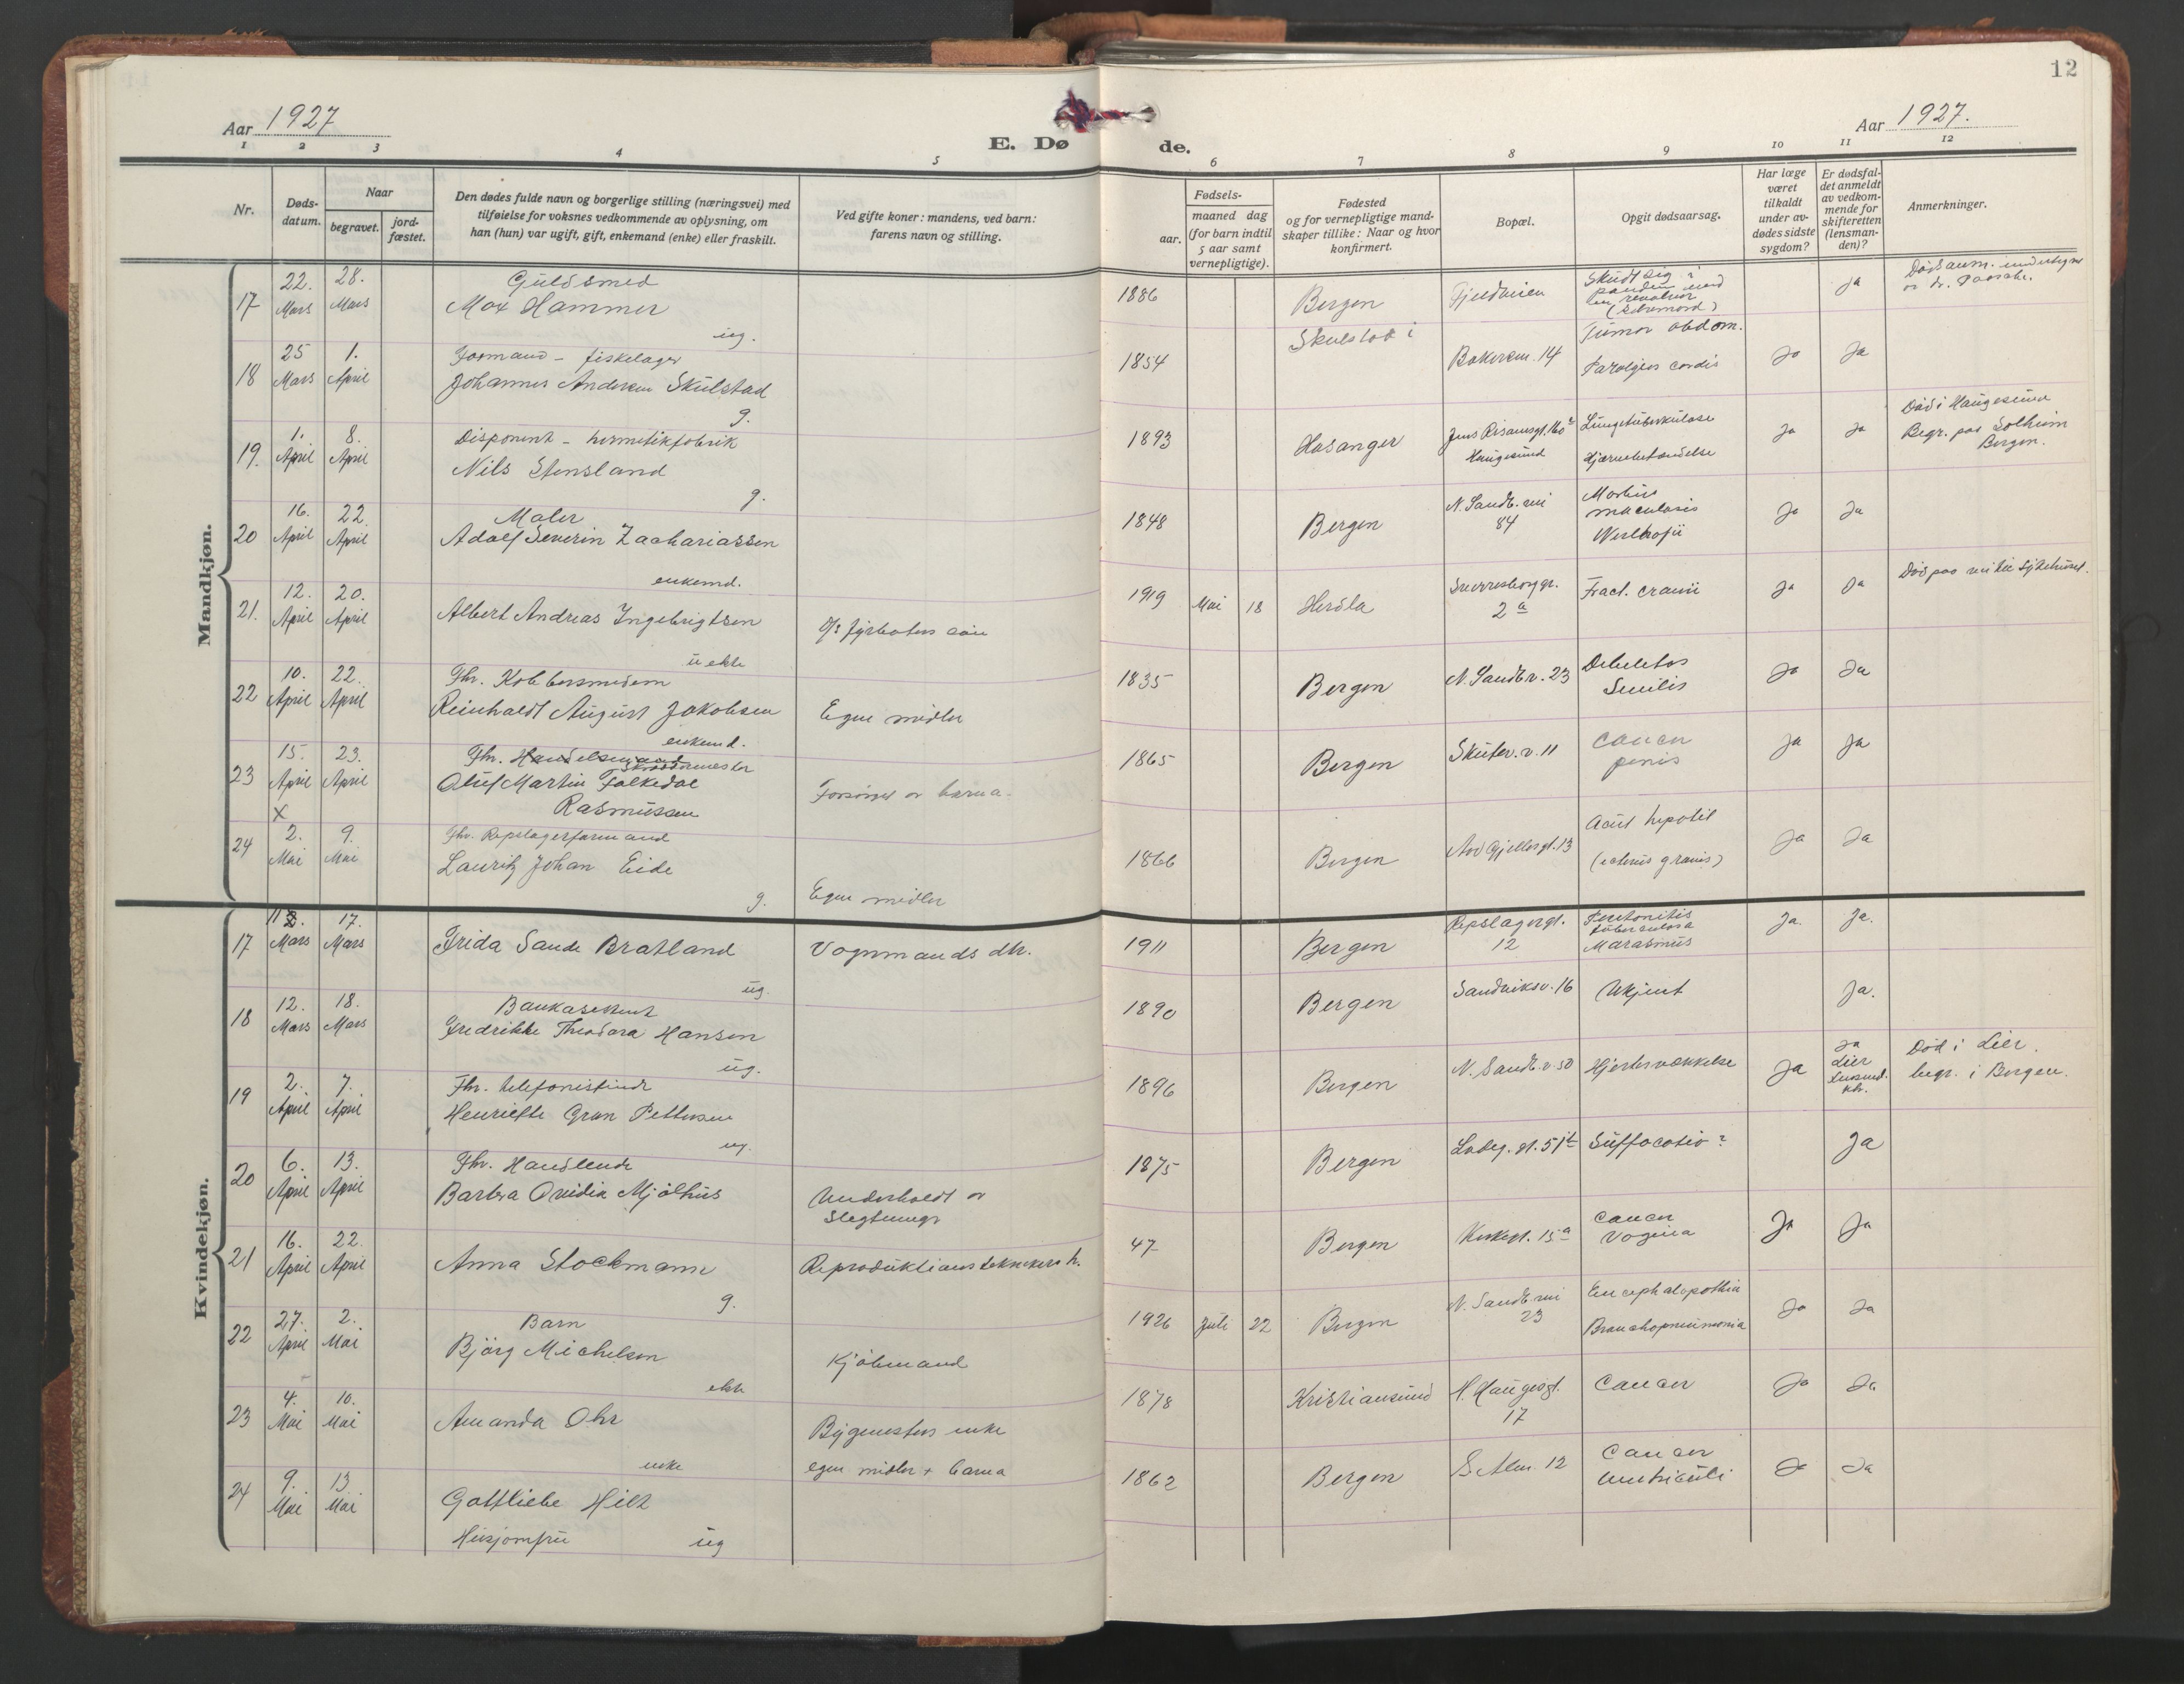 12
Aar 1927
Aar 1927.
E. Dø de.
1 2 3 4 5 6 7 8 9 10 11 12
Nr.
Døds-
datum.
Naar
begravet.
jord-
fæstet.
Den dødes fulde navn og borgerlige stilling (næringsvei) med
tilføielse for voksnes vedkommende av oplysning, om
han (hun) var ugift, gift, enkemand (enke) eller fraskilt.
Ved gifte koner: mandens, ved barn:
farens navn og stilling.
Fødsels-
aar.
maaned dag
(for barn indtil
5 aar samt
vernepligtige).
Fødested
og for vernepligtige mand-
skaper tillike: Naar og hvor
konfirmert.
Bopæl.
Opgit dødsaarsag.
Har læge
været
tilkaldt
under av-
dødes sidste
sygdom?
Er dødsfal-
det anmeldt
av vedkom-
mende for
skifteretten
(lensman-
den)?
Anmerkninger.
Mandkjøn.
17 22. Mars 28. Mars
Guldsmed
Max Hammer
ug.
1886 Bergen Fjeldveien
Skudt sig i
panden med
en revolver
(selvmord)
Ja
18 25 Mars 1. April
Formand - fiskelager
Johannes Andersen Skulstad
g.
1854 Skulstad i
Bakersm. 14
Tumor abdom.
Paralysis cordis
Ja Ja
19. 1. April 8. April
Disponent - hermetikfabrik
Nils Stensland
g.
1893 Hosanger
Jens Risamsgt. 160
Haugesund
Lungetuberkulose
Hjernebetændelse
Ja Ja
Död i Haugesund
Begr. paa Solheim
Bergen.
20 16. April 22. April
Maler
Adolf Severin Zachariassen
enkemd.
1848 Bergen
N. Sandb. vei
84
Morbus
maculosis
Werlhofii
Ja Ja
21. 12. April 20. April
Albert Andreas Ingebrigtsen
uekte
D/s fyrböters sön
1919 Mai 18 Herdla
Sverresborggt.
2 a
Fract. cranii
Ja Ja
22 10. April 22. April
Fhv. Kobbersmedem
Reinholdt August Jakobsen
enkemd.
Egne midler
1835 Bergen N. Sandb. v. 23
Debilitas
Senilis
Ja Ja
23 15. April 23. April
Fhv. Handelsmand
Skræddermester
Oluf Martin Falkedal
Rasmussen
Forsörget av barna
1865 Bergen Skutev. v. 11
Cancer
penis
Ja Ja
24 X 2. Mai 9. Mai
Fhv. Repslagerformand
Lauritz Johan Eide
g.
Egne midler
1866 Bergen
Acut hepatit
(icterus gravis)
Ja Ja
Kvindekjøn.
17 12. Mars 17. Mars
Frida Sande Bratland
ug.
Vognmands dtr.
1911 Bergen
Repslagergt.
12
Peritonitis
tuberculosa
Marasmus
Ja. Ja.
18 12. Mars 18. Mars
Bankassistent
Fredrikke Theodora Hansen
ug.
1890 Bergen Sandviksv. 16 Ukjent Ja.
19 2. April 7. April
Fhv. telefonistinde
Henriette Gran Pettersen
ug.
1896 Bergen N. Sandb. v. 50 Hjertesvækkelse
Ja
Ja
Lier
Lensmd.
ktr.
Död i Lier.
begr. i Bergen.
20 6. April 13. April
Fhv. Handlende
Barbra Ovidia Mjölhus
Underholdt av
Slegtninger
1875 Bergen Ladeg. gt. 51 b Suffocatio? Ja
21 16. April 22. April
Anna Stockmann
g.
Reproduktionsteknikers h.
47 Bergen Kirkegt. 15 a
Cancer
Vagina
Ja Ja
22 27. April 2. Mai
Barn
Björg Michelsen
ekte
Kjöbmand
1926 Juli 22 Bergen
N. Sandb. vei
23
Encephalopathia
Bronchopneumonia
Ja Ja
23 4. Mai 10. Mai
Amanda Ohr
enke
Bygmesters enke
egne midler + barna
1878 Kristiansund
H. Haugesgt.
17
Cancer
Ja Ja
24 9. Mai 13. Mai
Gottliebe Hilt
Husjomfru ug
1862 Bergen S. Alm. 12
Cancer
ventriculi
Ja Ja